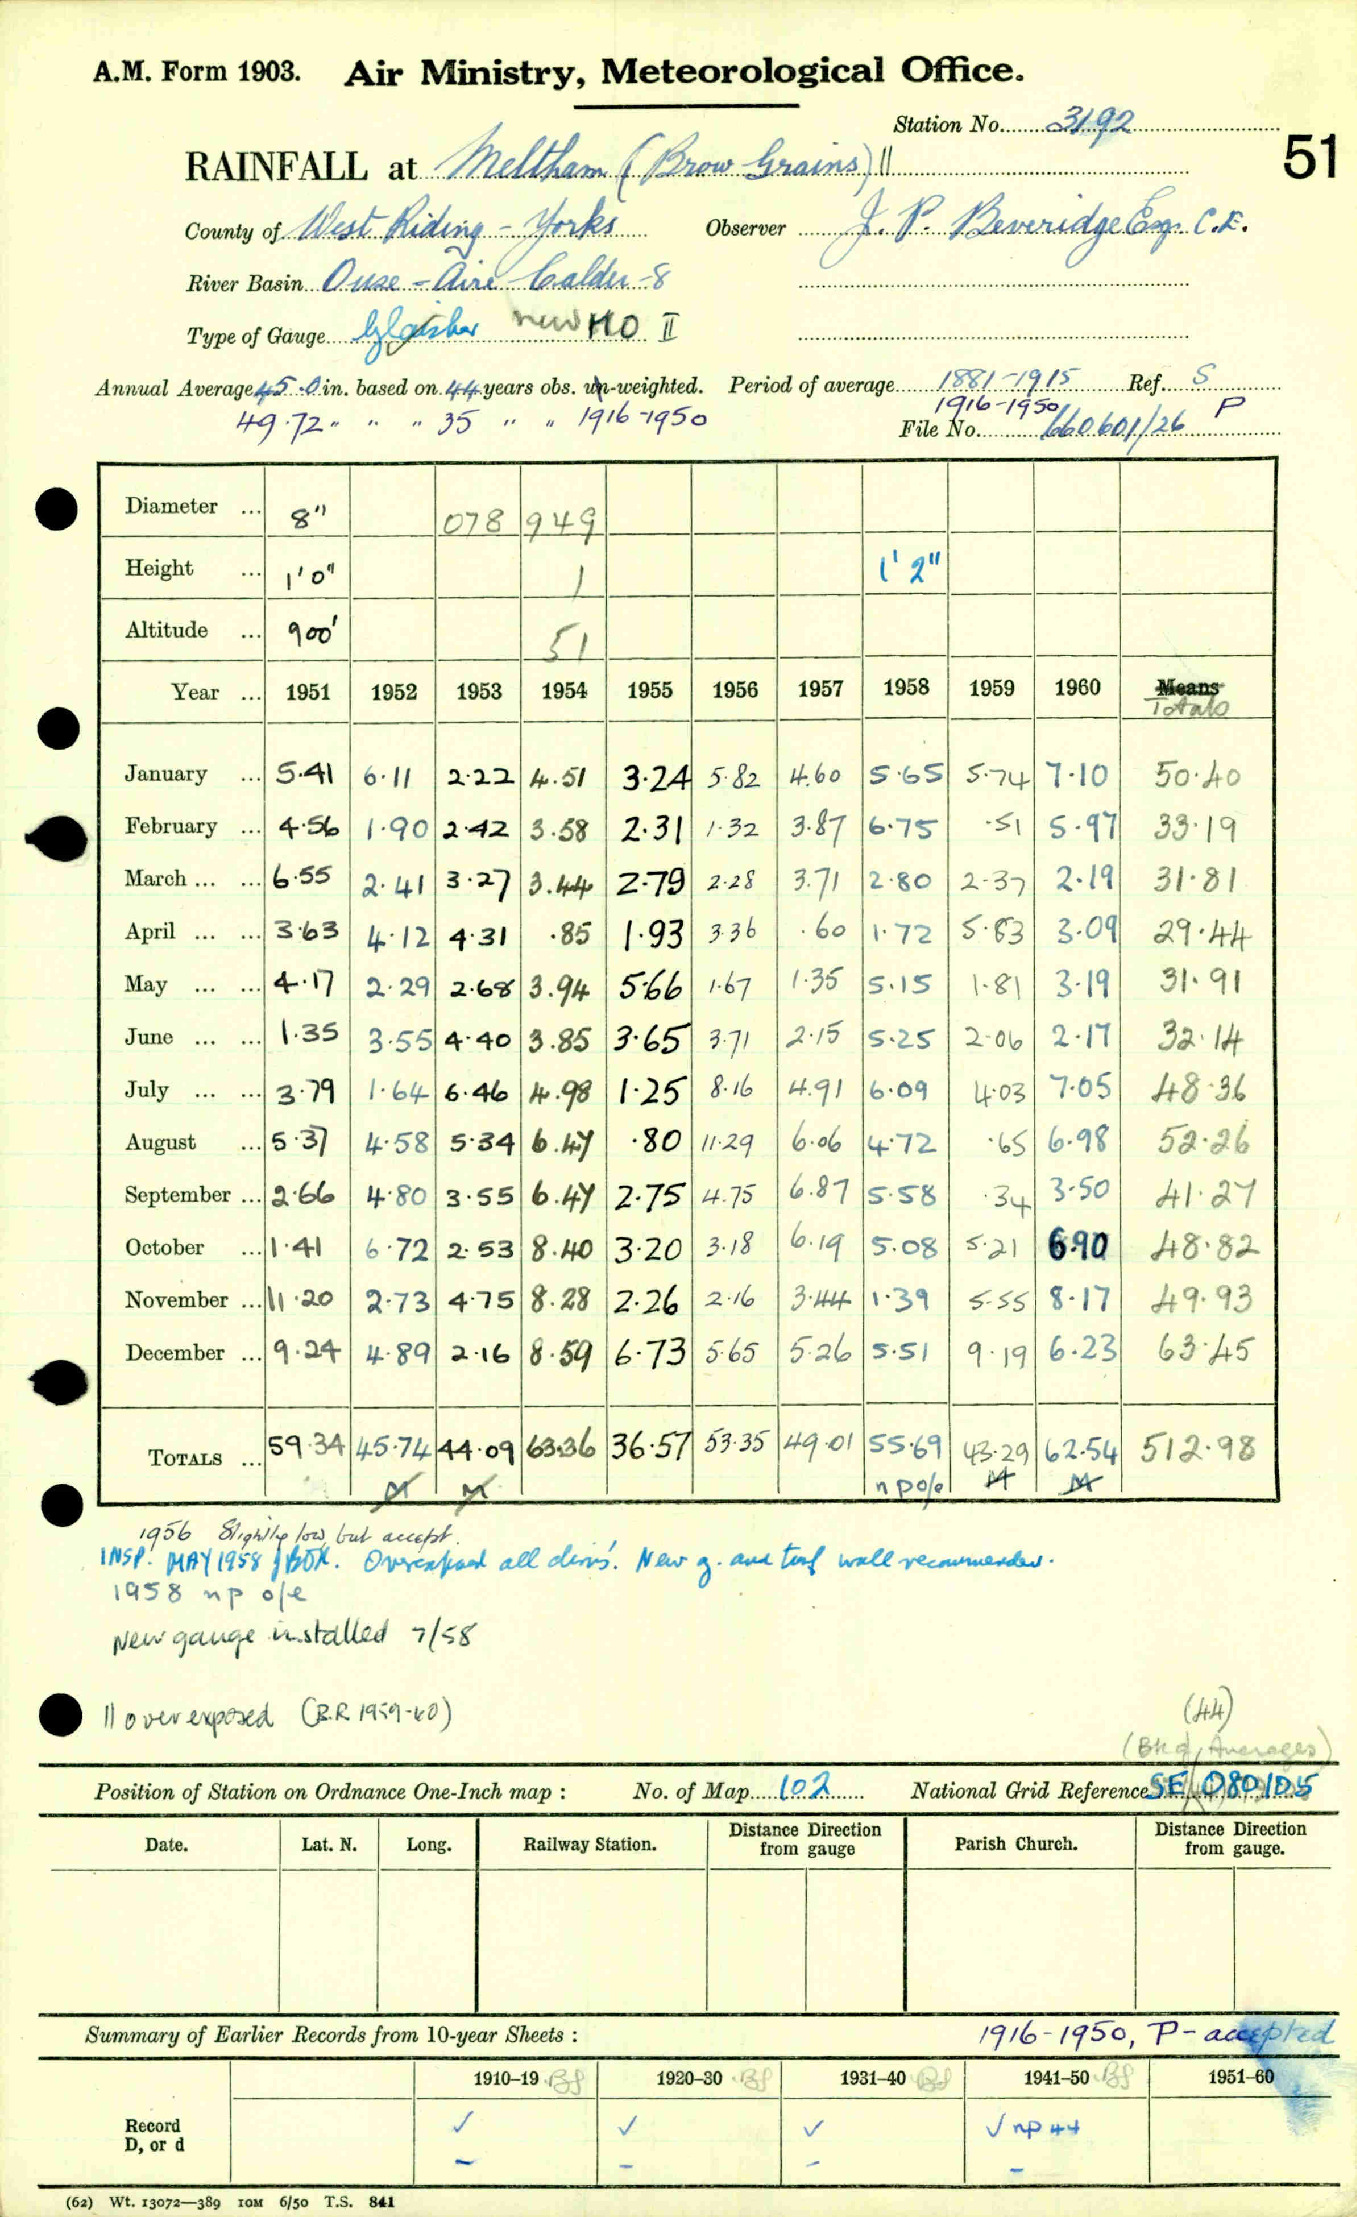 A.M. Form 1903. Air Ministry, Meteorological Office.
Station No. 3192
51
RAINFALL at Meltham (Brow Grains) ||
County of West Riding - Yorks Observer J. P. Beveridge Esq. C.E.
River Basin Ouse - Aire - Calder - 8
Type of Gauge Glaisher new MO II
Annual Average 45.0 in. based on 44 years obs. un-weighted. Period of average 1881-1915 Ref. S
49.72 " " " 35 " " 1916-1950 1916-1950 P
File No. 660601/26
Diameter ... 8" 078 949
Height ... 1'0" 1 1'2"
Altitude ... 900' 51
Year ... 1951 1952 1953 1954 1955 1956 1957 1958 1959 1960 Means
Totals
January ... 5.41 6.11 2.22 4.51 3.24 5.82 4.60 5.65 5.74 7.10 50.40
February ... 4.56 1.90 2.42 3.58 2.31 1.32 3.87 6.75 .51 5.97 33.19
March ... ... 6.55 2.41 3.27 3.44 2.79 2.28 3.71 2.80 2.37 2.19 31.81
April ... ... 3.63 4.12 4.31 .85 1.93 3.36 .60 1.72 5.83 3.09 29.44
May ... ... 4.17 2.29 2.68 3.94 5.66 1.67 1.35 5.15 1.81 3.19 31.91
June ... ... 1.35 3.55 4.40 3.85 3.65 3.71 2.15 5.25 2.06 2.17 32.14
July ... ... 3.79 1.64 6.46 4.98 1.25 8.16 4.91 6.09 4.03 7.05 48.36
August ... 5.37 4.58 5.34 6.47 .80 11.29 6.06 4.72 .65 6.98 52.26
September ... 2.66 4.80 3.55 6.47 2.75 4.75 6.87 5.58 .34 3.50 41.27
October ... 1.41 6.72 2.53 8.40 3.20 3.18 6.19 5.08 5.21 6.90 48.82
November ... 11.20 2.73 4.75 8.28 2.26 2.16 3.44 1.39 5.55 8.17 49.93
December ... 9.24 4.89 2.16 8.59 6.73 5.65 5.26 5.51 9.19 6.23 63.45
TOTALS ... 59.34 45.74 44.09 63.36 36.57 53.35 49.01 55.69 43.29 62.54 512.98
M M n p o/e M M
1956 Slightly low but accept.
INSP. MAY 1958 Overexposed all dirns. New g. and turf wall recommended.
1958 n p o/e
New gauge installed 7/58
|| overexposed (B.R 1959-60)
(44)
(Bk of Averages)
Position of Station on Ordnance One-Inch map : No. of Map 102 National Grid Reference SE 080105
Date. Lat. N. Long. Railway Station. Distance Direction from gauge Parish Church. Distance Direction from gauge.
Summary of Earlier Records from 10-year Sheets : 1916-1950, P - accepted
1910–19 1920–30 1931–40 1941–50 1951–60
Record ✓ ✓ ✓ ✓ np 44
D, or d – – – –
(62) Wt. 13072—389 10M 6/50 T.S. 841